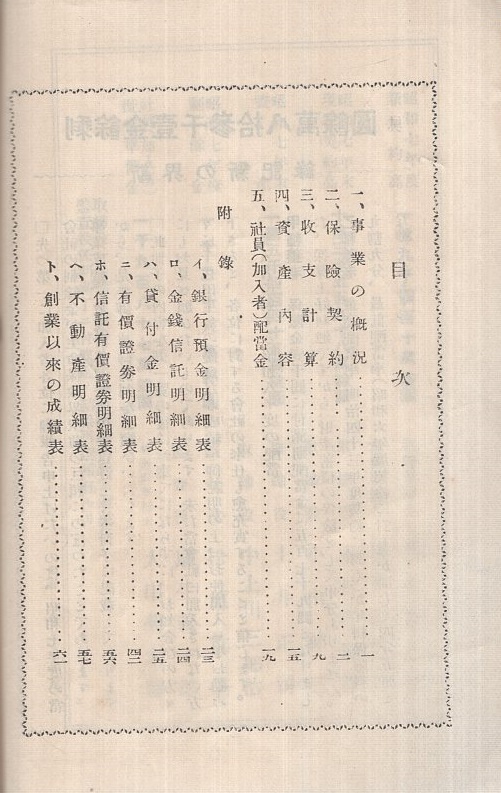 目次
一、事業の概況…………一
二、保險契約…………二
三、收支計算…………九
四、資產內容…………一五
五、社員(加入者)配當金…………一九
附錄
イ、銀行預金明細表…………二三
ロ、金錢信託明細表…………二四
ハ、貸付金明細表…………二五
ニ、有價證券明細表…………四二
ホ、信託有價證券明細表…………五六
ヘ、不動產明細表…………五七
ト、創業以來の成績表…………六一